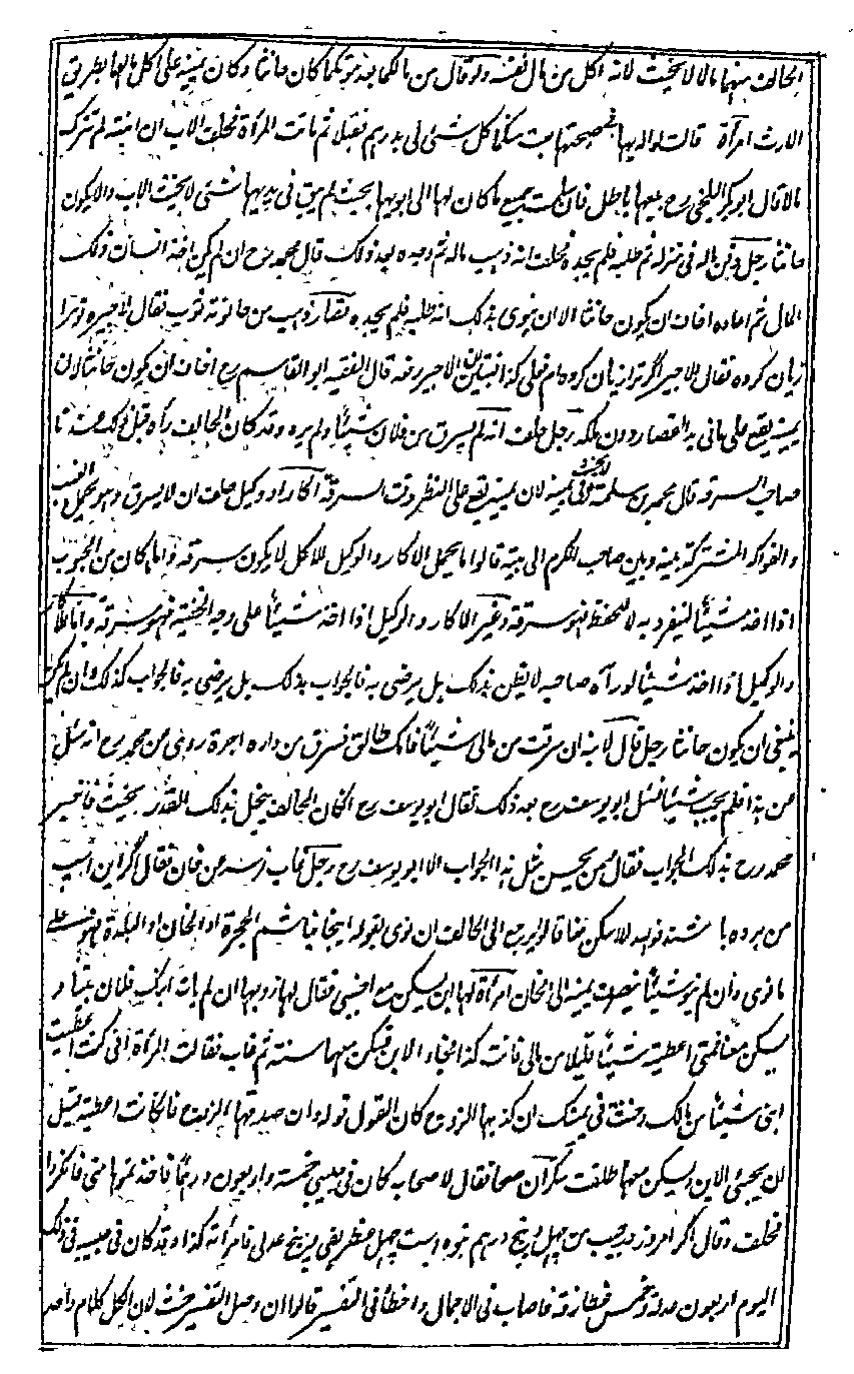 الحالف منها مالا لا يحنث لانه اكل من مال نفسه ولو قال من مالكما بعد موتكما كان حانثا وكان يمينه على اكل مالهما بطريق
الارث امرأة قالت لوالديها فى صحتها بعت منكما كل شئ لى بدرهم فقبلا ثم ماتت المرأة فحلف الاب ان ابنته لم تترك
مالا قال ابو بكر البلخى رح بيعها باطل فان سلمت جميع ما كان لها الى ابويها بحيث لم يبق فى يديها شئ لا يحنث الاب والا يكون
حانثا رجل دفن ماله فى منزله ثم طلبه فلم يجده فحلف انه ذهب ماله ثم وجده بعد ذلك قال محمد رح ان لم يكن اخذه انسان ذلك
المال ثم اعاده اخاف ان يكون حانثا الا ان ينوى بذلك انه طلبه فلم يجده قصار ذهب من حانوته ثوب فقال لاجيره تومرا
زيان كرده فقال الاجير اگر ترا زيان كرده ام فعلى كذا الاجير رفعه قال الفقيه ابو القاسم رح اخاف ان يكون حانثا لان
يمينه يقع على مافى يد القصار دون ملكه رجل حلف انه لم يسرق من فلان شيئا ولم يره وقد كان الحالف رأه قبل ذلك عند
صاحب السرقة قال محمد بن سلمة لا يحنث فى يمينه لان يمينه يقع على النظر وقت السرقة اكار او وكيل حلف ان لا يسرق وهو يحمل العنب
والفواكه المشتركة بينه وبين صاحب الكرم الى بيته قالوا ما يحمل الاكار والوكيل للاكل لا يكون سرقة واما كان من الحبوب
اذا اخذ شيئا لينفرد به لا للحفظ فهو سرقة وغير الاكار والوكيل اذا اخذ شيئا على وجه الخفية فهو سرقة واما الاكار
والوكيل اذا اخذ شيئا لو رآه صاحبه لا يظن بذلك بل يرضى به فالجواب كذلك وان لم يكن
ينبغى ان يكون حانثا رجل قال لابنه ان سرقت من مالى شيئا فامك طالق فسرق من داره اجرة روى عن محمد رح انه سئل
عن هذا فلم يجب شيئا فسئل ابو يوسف رح بعد ذلك فقال ابو يوسف رح ان كان الحالف يبخل بذلك القدر يحنث فاخبر
محمد رح بذلك الجواب فقال من يحسن مثل هذا الجواب الا ابو يوسف رح رجل غاب فرسه من خان فقال اگر اين اسپ
من برده باشند نوالله لا اسكن هنا قالوا يرجع الى الحالف ان نوى بقوله اينجا نباشم الحجرة او الخان او البلدة فهو على
ما نوى وان لم ينو شيئا ينصرف يمينه الى الخان امرأة لها ابن يسكن مع اجنبى فقال لها زوجها ان لم يأت ابنك فلان بيتنا و
يسكن معنا فمتى اعطيته شيئا قليلا من مالى فانت كذا فجاء الابن فسكن معها سنة ثم غاب فقالت المرأة انى كنت اعطيت
ابنى شيئا من مالك وحنثت فى يمينك ان كذبها الزوج كان القول قوله وان صدقها الزوج فان كانت اعطته قبل
ان يجئ الابن ويسكن معها طلقت سكران صحا فقال لاصحابه كان فى جيبى خمسة واربعون درهما فاخذتموها منى فانكروا
فحلف وقال اگر امروز در جيب من چهل و پنج درهم نبوده است چهل غطريفى و پنج عدلى فامرأته كذا وقد كان فى جيبه فى ذلك
اليوم اربعون عدلية وخمس غطارفة فاصاب فى الاجمال واخطأ فى التفسير قالوا ان وصل التفسير حنث لان الكل كلام واحد